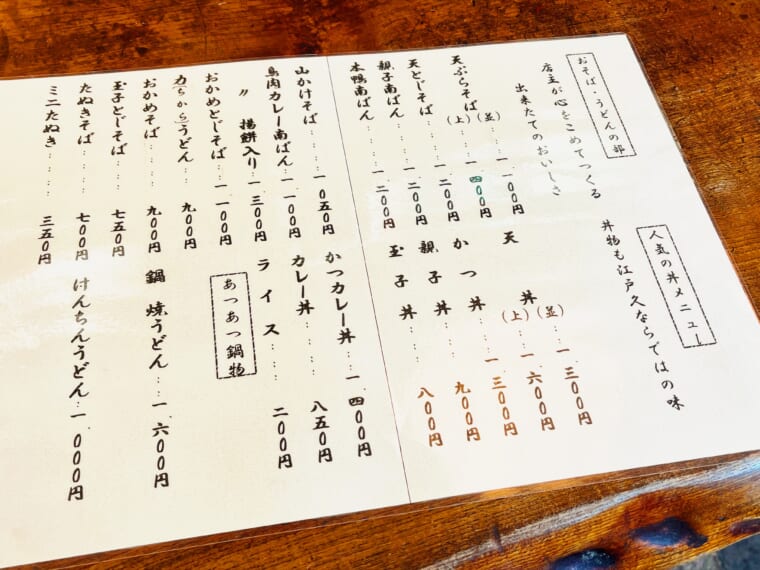 おそば・うどんの部
店主が心をこめてつくる
出来たてのおいしさ
天ぷらそば(並)…一、一〇〇円
(上)…一、四〇〇円
天とじそば…一、二〇〇円
親子南ばん…一、二〇〇円
本鴨南ばん…一、二〇〇円
山かけそば……一、〇五〇円
鳥肉カレー南ばん…一、一〇〇円
〃 揚餅入り…一、三〇〇円
おかめとじそば…一、一〇〇円
力(ちから)うどん…九〇〇円
おかめそば……九〇〇円
玉子とじそば……七五〇円
たぬきそば……七〇〇円
ミニたぬき……三五〇円
人気の丼メニュー
丼物も江戸久ならではの味
天丼(並)…一、三〇〇円
(上)…一、六〇〇円
かつ丼……一、三〇〇円
親子丼……九〇〇円
玉子丼……八〇〇円
かつカレー丼…一、四〇〇円
カレー丼……八五〇円
ライス……二〇〇円
あつあつ鍋物
鍋焼うどん…一、六〇〇円
けんちんうどん…一、〇〇〇円